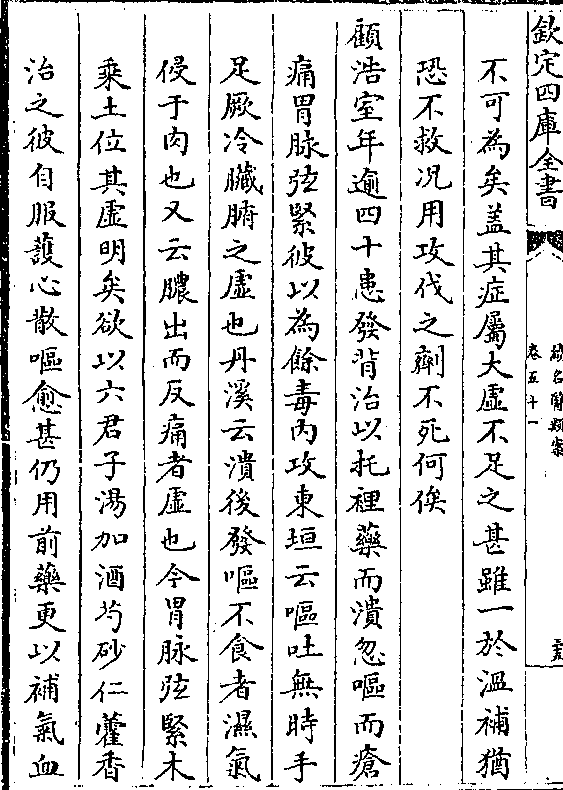 欽定四庫全書
續名醫類案
卷五十一
不可為矣蓋其症屬大虛不足之甚雖一於溫補猶
恐不救況用攻伐之劑不死何俟
顧浩室年逾四十患發背治以托裡藥而潰忽嘔而瘡
痛胃脉弦緊彼以為餘毒內攻東垣云嘔吐無時手
足厥冷臟腑之虛也丹溪云潰後發嘔不食者濕氣
侵于內也又云膿出而反痛者虛也今胃脉弦緊木
乘土位其虛明矣欲以六君子湯加酒芍砂仁藿香
治之彼自服護心散嘔愈甚仍用前藥更以補氣血